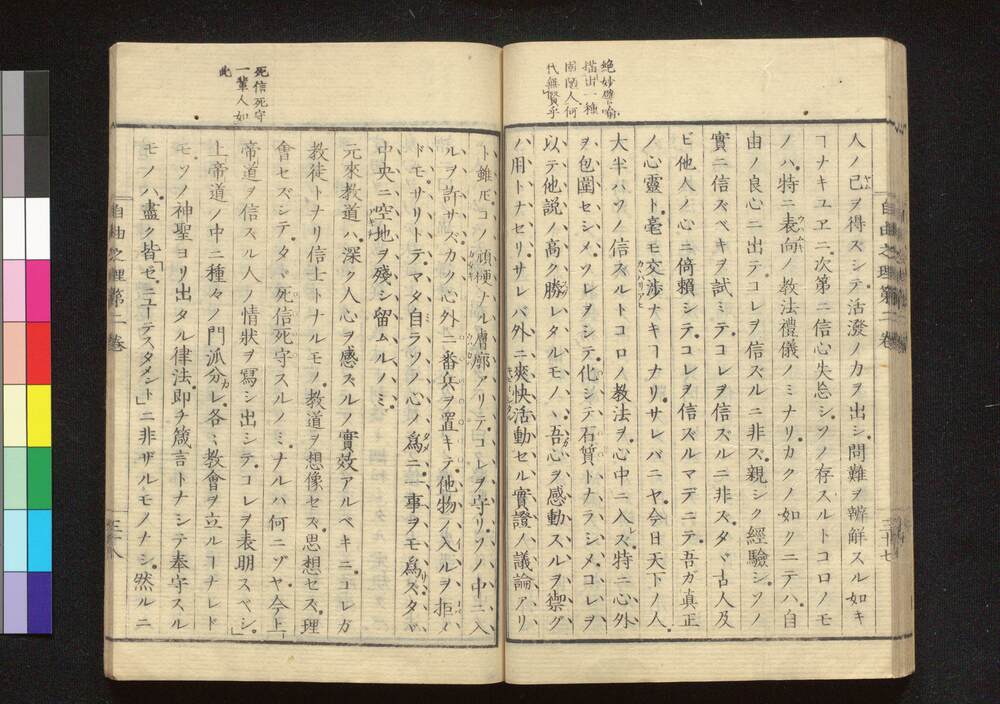 絶妙譬喩
描出一種
固陋人何
代無賢乎
人ノ已ヲ得ズシテ活潑ノ力ヲ出シ問難ヲ辨解スル如キ
ヿナキユヱニ次第ニ信心失忘シソノ存スルトコロノモ
ノハ特ニ表向ノ教法禮儀ノミナリカクノ如クニテハ自
由ノ良心ニ出テコレヲ信ズルニ非ズ親シク經驗シソノ
實ニ信ズベキヲ試ミテコレヲ信スルニ非スタヾ古人及
ビ他人ノ心ニ倚頼シテコレヲ信ズルマデニテ吾ガ真正
ノ心靈ト毫モ交渉ナキヿナリサレバニヤ今日天下ノ人
大半ハソノ信スルトコロノ教法ヲ心中ニ入レズ特ニ心外
ヲ包圍セシメソレヲシテ化シテ石質トナラシメコレヲ
以テ他説ノ高ク勝レタルモノヽ吾心ヲ感動スルヲ禦グ
ハ用トナセリサレバ外ニ爽快活動セル實證ノ議論アリ
自由之理第二卷
三十七
死信死守
一輩人如
此
ト雖𪜈コノ頑梗ナル膚廓アリテコレヲ守リソノ中ニ入
ルヲ許サズカク心外ニ番兵ヲ置キテ他物ノ入ルヲ拒ケ
ドモサリトテマタ自ラソノ心ノ爲ニ一事ヲモ爲スタヾ
中央ニ空地ヲ殘シ留ムルノミ
元來教道ハ深ク人心ヲ感ズルノ實效アルベキニコレガ
教徒トナリ信士トナルモノ教道ヲ想像セズ思想セズ理
會セズシテタヾ死信死守スルノミナルハ何ニゾヤ今上
帝道ヲ信スル人ノ情狀ヲ寫シ出シテコレヲ表明スベシ
上帝道ノ中ニ種々ノ門派分レ各々教會ヲ立ルヿナレド
モソノ神聖ヨリ出タル律法即チ箴言トナシテ奉守スル
モノハ盡ク皆「ゼニューテスタメント」ニ非ザルモノナシ然ルニ
自由之理第二卷
三十八